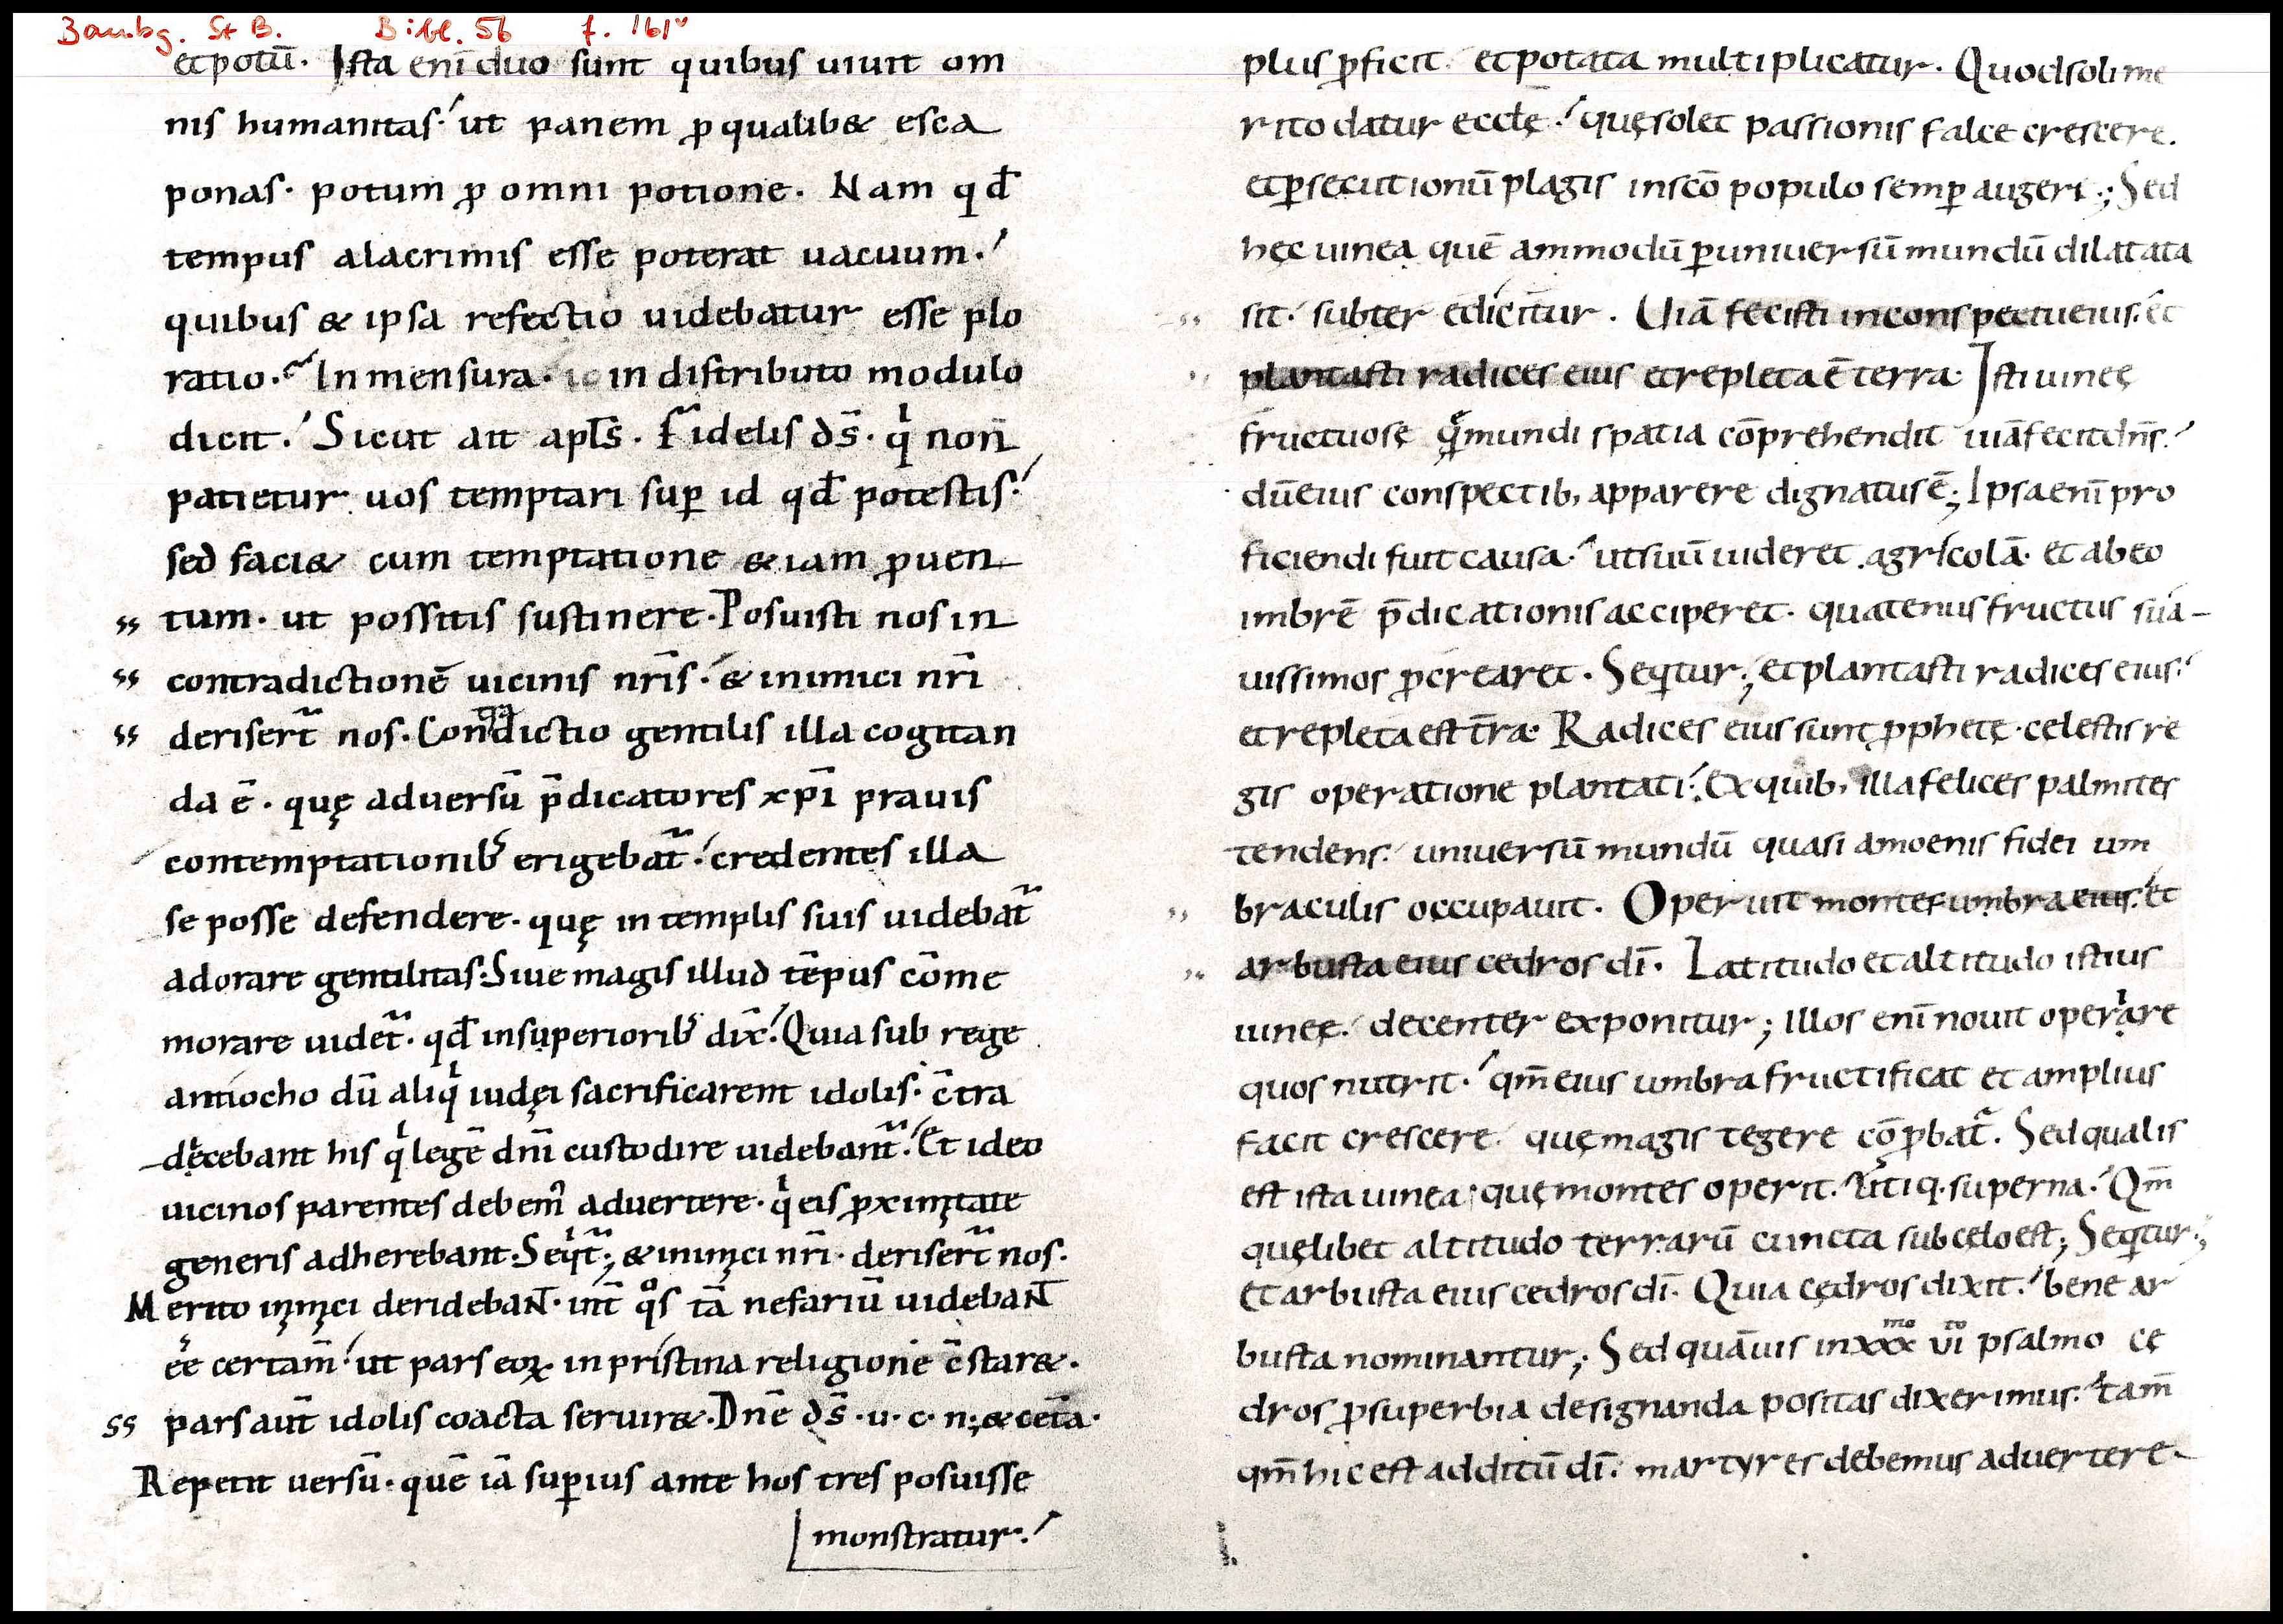 Bambg. St B. Bibl. 56 f. 161v
et potū. Ista eni duo sunt quibus uiuit om
nis humanitas. ut panem ꝓ qualib& esca
ponas. potum ꝓ omni potione. Nam qđ
tempus alacrimis esse poterat uacuum.
quibus & ipsa refectio uidebatur esse plo
ratio. In mensura. in distributo modulo
dicit. Sicut ait apłs. Fidelis ds̄. qͥ non
patietur uos temptari suꝑ id qđ potestis.
sed faci& cum temptatione &iam ꝓuen
tum. ut possitis sustinere. Posuisti nos in
contradictionē uicinis nr̄is. & inimici nr̄i
deriser̄t nos. Contradictio gentilis illa cogitan
da ē. quę aduersū p̄dicatores xpī prauis
contemptationibꝰ erigebat̄. credentes illa
se posse defendere. quę in templis suis uidebat̄
adorare gentilitas. Siue magis illud tēpus cōme
morare uidet̄. qđ in superioribꝰ dix̄. Quia sub rege
antiocho dū aliqͥ iudęi sacrificarent idolis. c̄tra
dicebant his qͥ legē dn̄i custodire uidebant̄. Et ideo
uicinos parentes debemꝰ aduertere. qͥ eis ꝓximitate
generis adherebant. Seqͥt̄; & inimici nr̄i. deriser̄t nos.
Merito inimici deridebaN̄. int̄ qͦs tā nefariū uidebaN̄
eē certam̄. ut pars eoꝝ in prístina religione c̄star&.
pars aut̄ idolis coacta seruir&. Dn̄e ds̄. u. c. n; & cet̄a.
Repetit uersū. quē iā suꝑius ante hos tres posuisse
monstratur.
plus ꝓficit. et potata multiplicatur. Quod soli me
rito datur eccłę. quę solet passionis falce crescere.
et ꝑsecutionū plagis in scō populo semꝑ augeri; Sed
hęc uinea quē ammodū ꝑ uniuersū mundū dilatata
sit. subter edicitur. Uiā fecisti in conspectu eius. et
plantasti radices eius et repleta ē terra. Isti uineę
fructuosę quę mundi spatia cōprehendit uiā fecit dn̄s.
dū eius conspectib; apparere dignatus ē; Ipsa eni pro
ficiendi fuit causa. ut suū uideret agrícolā. et ab eo
imbrē p̄dicationis acciperet. quatenus fructus sua-
uissimos ꝓcrearet. Seqtur; et plantasti radices eius.
et repleta est tr̄a. Radices eius sunt ꝓphetę. cęlestis re
gis operatione plantati. Ex quib; illa felices palmites
tendens. uniuersū mundū quasi amoenis fidei um
braculis occupauit. Operuit montes umbra eius. et
arbusta eius cedros dī. Latitudo et altitudo istius
uineę. decenter exponitur; Illos eni nouit operire
quos nutrit. qm̄ eius umbra fructificat et amplius
facit crescere. quę magis tegere cōꝓbat̄. Sed qualis
est ista uinea. quę montes operit. Utiq. superna. Qm̄
quęlibet altitudo terrarū cuncta sub cęlo est; Seqtur;
et arbusta eius cedros dī. Quia cędros dixit. bene ar
busta nominantur; Sed quāuis in xxxmo vito psalmo cę
dros ꝓ superbia designanda positas dixerimus. tam̄
qm̄ hic est additū dī. martyres debemus aduertere.